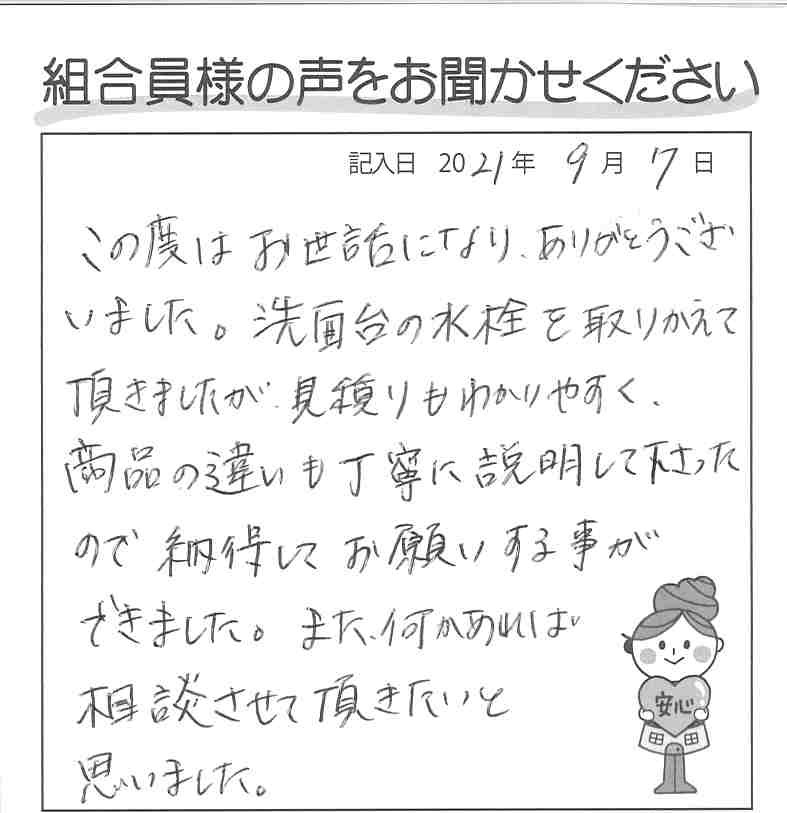 組合員様の声をお聞かせください
記入日 2021年 9月 17日
この度はお世話になり、ありがとうござ
いました。洗面台の水栓を取りかえて
頂きましたが、見積りもわかりやすく、
商品の違いも丁寧に説明して下さった
ので納得してお願いする事が
できました。また、何かあれば
相談させて頂きたいと
思いました。
安心